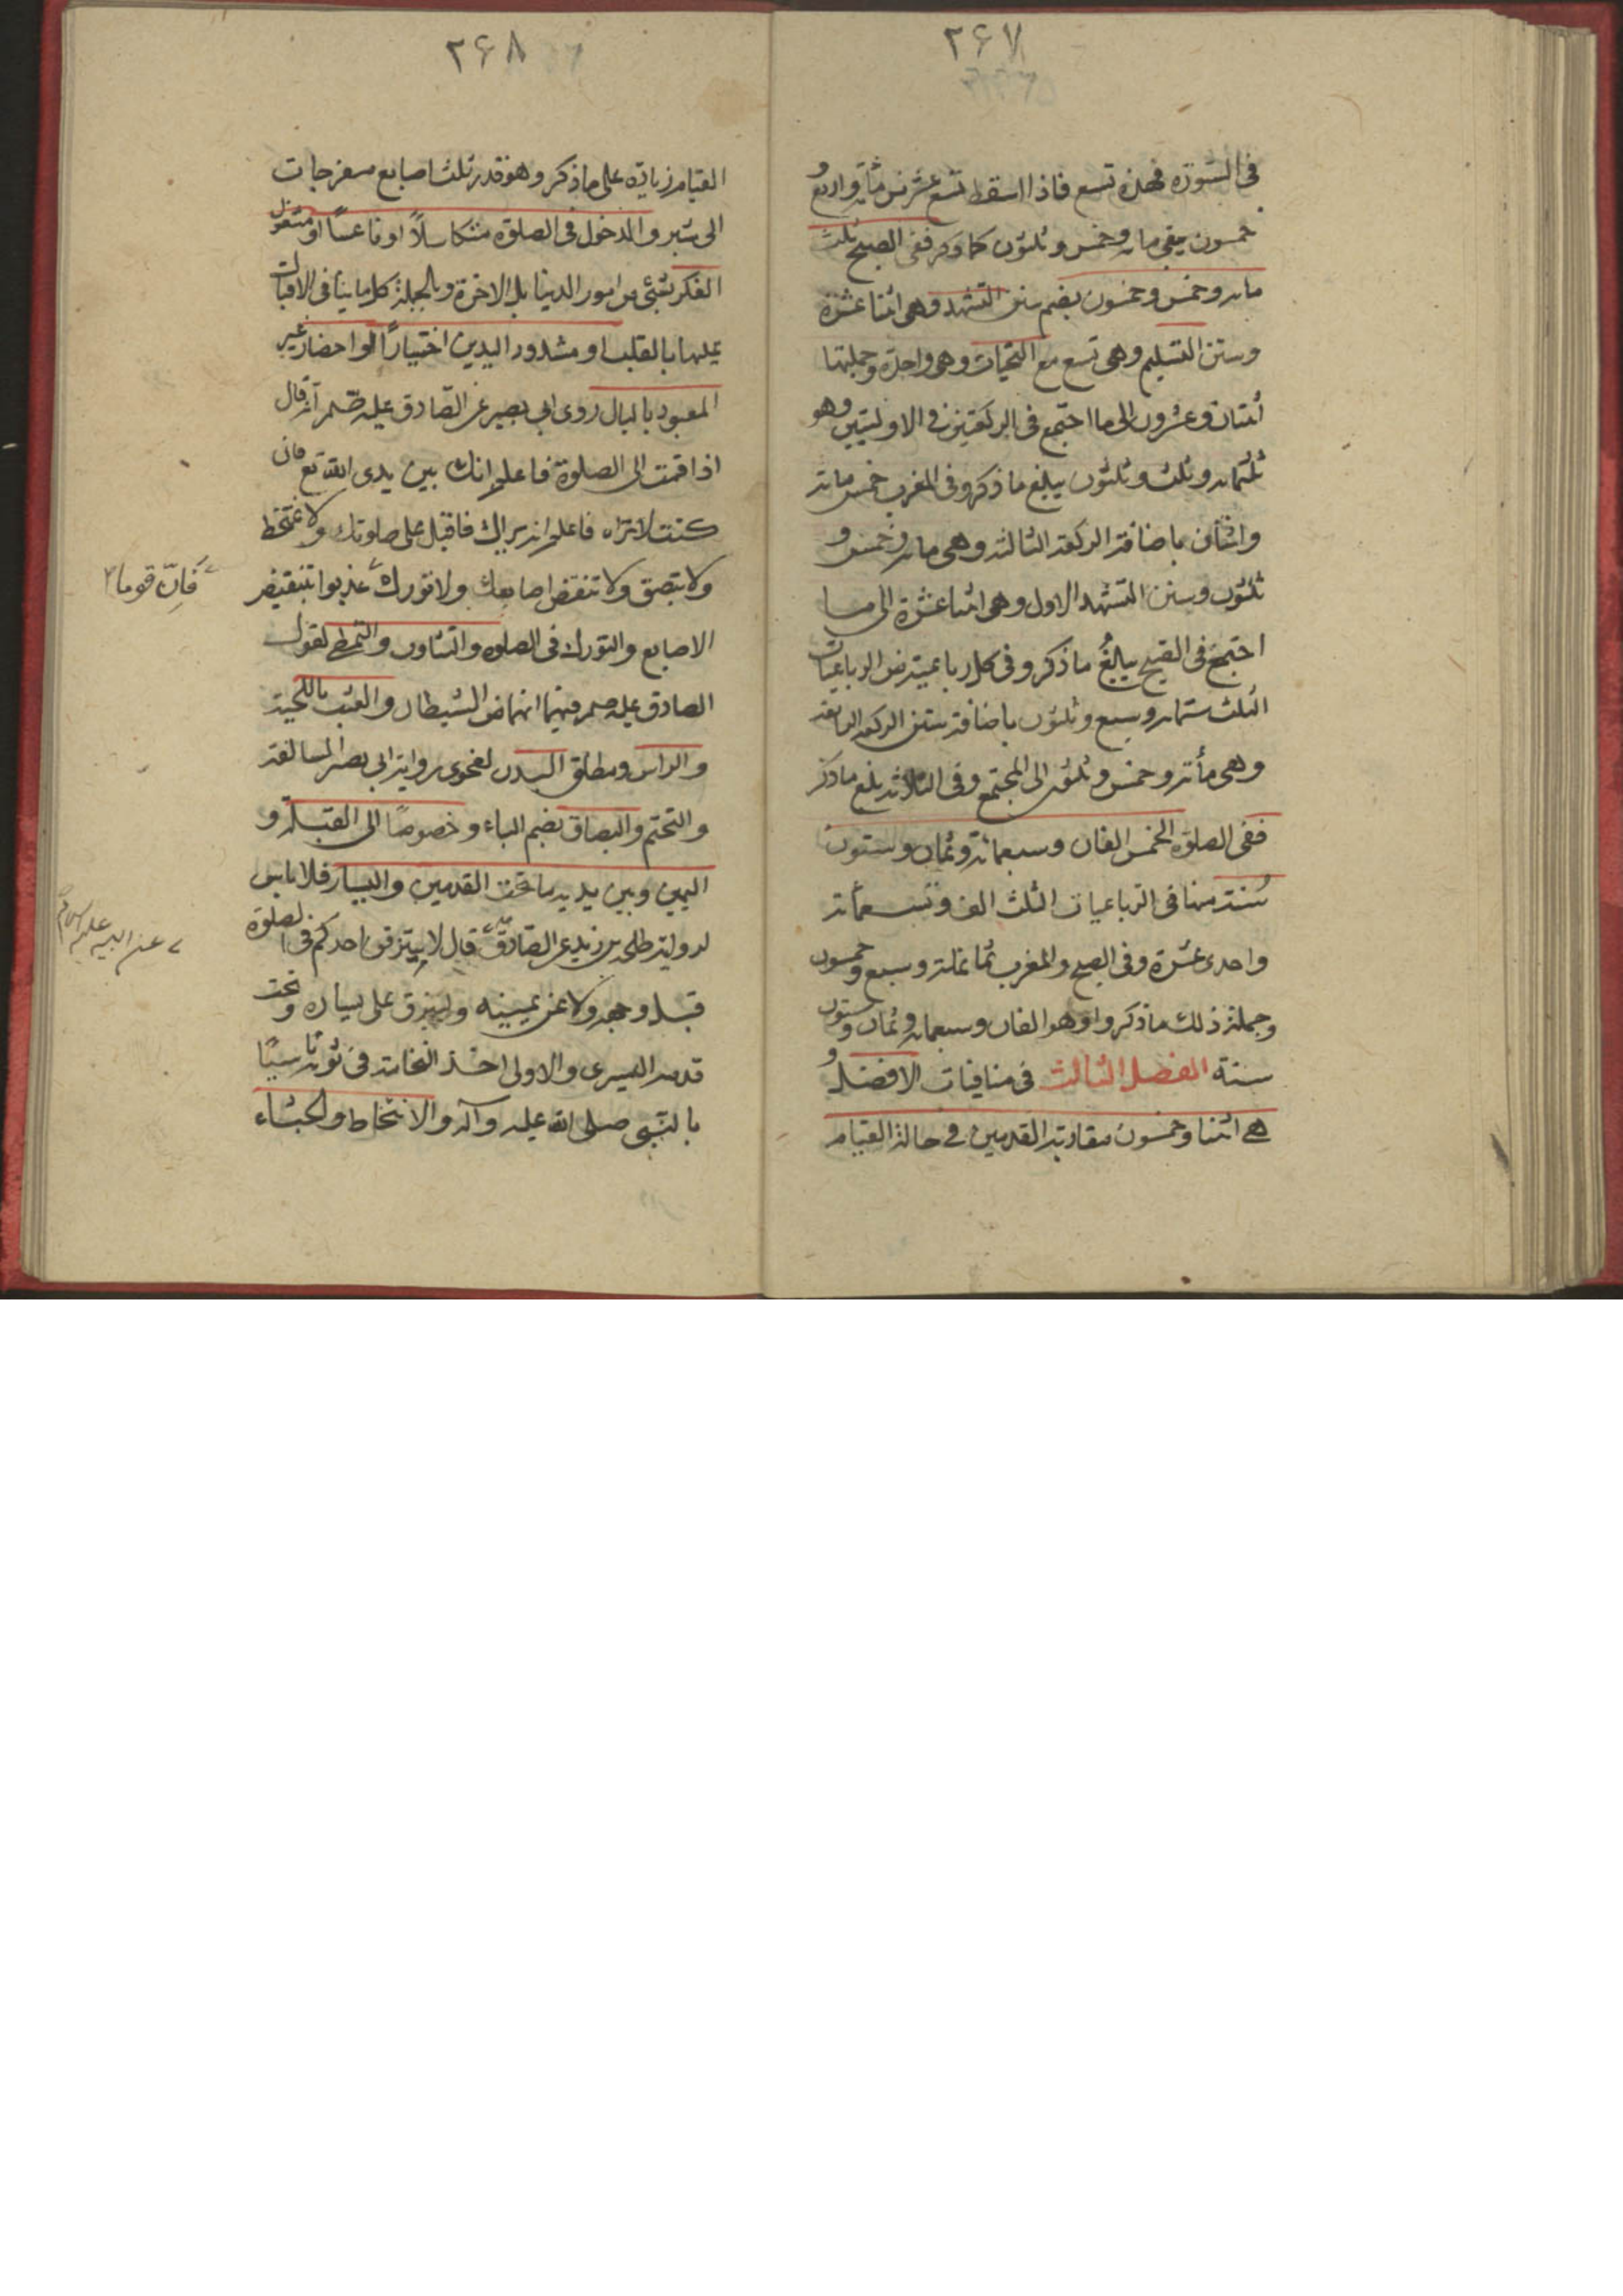 ٢۶٧
فى السورة فهذه تسع فاذا اسقط تسع عشر من مائة واربع و
خمسون يبقى مائه وخمس وثلثون كما ذكر ففى الصبح ثلث
مائه وخمس وخمسون بضم سنن التشهد وهى اثنتا عشرة
وسنن التسليم وهى تسع مع التحيات وهى واحدة وجملتها
اثنتان وعشرون الى ما اجتمع فى الركعتين فى الاوليتين وهو
ثلثمائه وثلث وثلثون يبلغ ما ذكر وفى المغرب خمس مائة
واثنان باضافة الركعة الثالثه وهى مائه وخمس و
ثلثون وسنن التشهد الاول وهى اثنتا عشرة الى ما
اجتمع فى الصبح يبلغ ما ذكر وفى كل رباعية من الرباعيات
الثلث ستمائه وسبع وثلثون باضافة سنن الركعه الرابعه
وهى مأئة وخمس وثلثون الى المجتمع وفى الثلاثه يبلغ ما ذكر
ففى الصلوة الخمس الفان وسبعمائة وثمان وستون
سنة منها فى الرباعيات الثلث الف وتسعمائة
واحدى عشرة وفى الصبح والمغرب ثمانمائة وسبع وخمسون
وجملة ذلك ما ذكروا وهو الفان وسبعمائه وثمان وستون
سنة الفصل الثالث فى منافيات الافضل و
هى اثنتا وخمسون مقاربة القدمين فى حالة القيام
٢۶٨
القيام زيادة على ما ذكر وهو قدر ثلث اصابع منفرجات
الى شبر والدخول فى الصلوة متكاسلاً او ناعساً او مشغول
الفكر بشئ من امور الدنيا بل الاخرة وبالجملة كل ما ينافى الاقبال
عليها بالقلب او مشدود اليدين اختياراً او احضار غير
المعبود بالبال روى ابى بصير عن الصادق عليه انه قال
اذا قمت الى الصلوة فاعلم انك بين يدى الله تع فان
كنت لا تراه فاعلم انه يراك فاقبل على صلوتك ولا تمتخط
ولا تبصق ولا تنقض اصابعك ولا تورك عذبوا بتنقيض
فَاِنّ قوما
الاصابع والتورك فى الصلوه والتثاوب والتمطى لقول
الصادق عليه فيهما انهما من الشيطان والعبث باللحية
والراس ومطلق البدن لفحوى رواية ابى بصير السالفة
والتختم والبصاق بضم الباء وخصوصًا الى القبلة و
اليمين وبين يديه ما تحت القدمين واليسار فلا باس
لرواية طلحه بن زيد عن الصادق قال لا يبزقن احدكم فى الصلوة
عن ابيه عليه السلام
قبل وجهه ولا عن يمينه وليبزق على يساره وتحت
قدمه اليسرى والاولى اخذ النخامة فى ثوبه تاسيًا
بالنبى صلى الله عليه وآله والامتخاط والجشاء